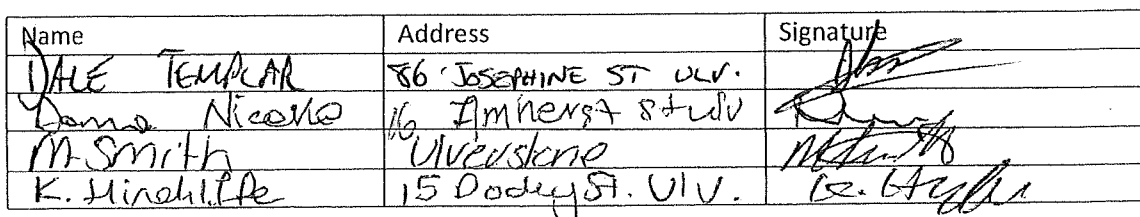 Name Address Signature
DALE TEMPLAR 86 JOSEPHINE ST ULV.
Donna Nicolle 16 Amherst St Ulv
M. Smith Ulverstone
K. Hinchliffe 15 St. Ulv.